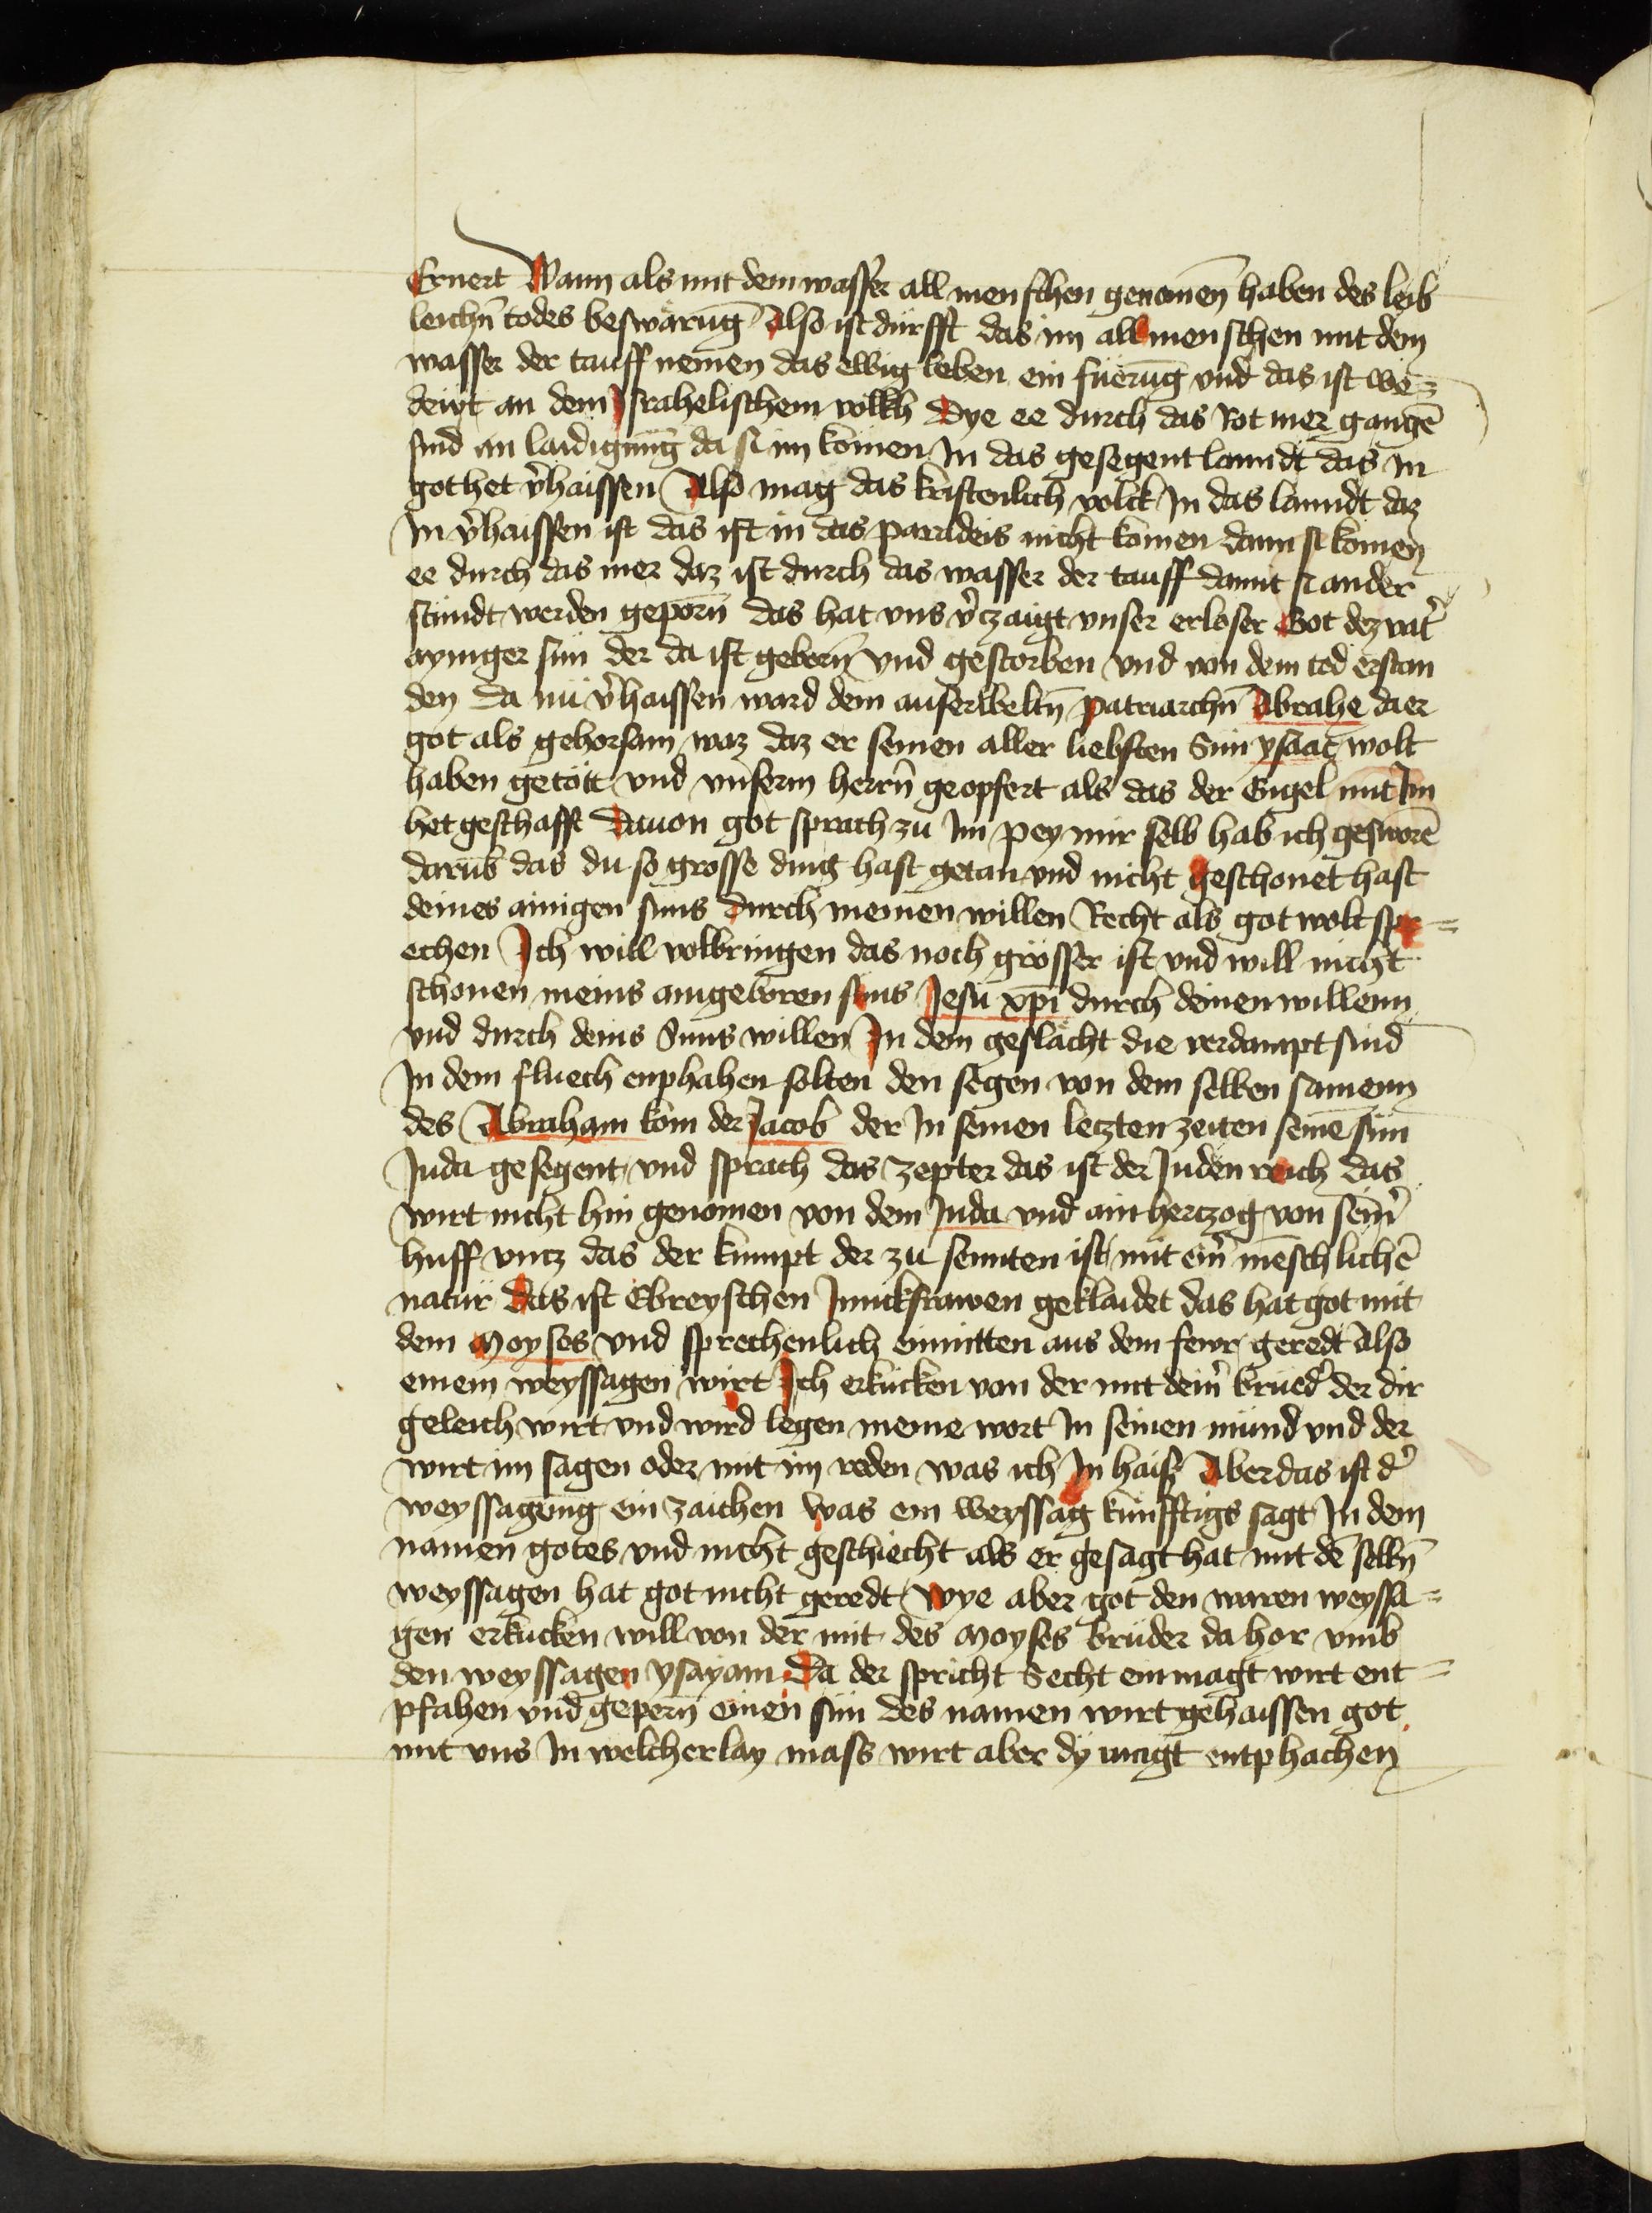 Ernert Wann als mit dem wasser all menschen genomen̄ haben des leib
leichn̄ todes beswärūg Also ist dürfft das im all menschen mit dem
wasser der tauff nemen das ewig leben ein füerūg vnd das ist we=
deiyt an dem Israhelischem volkh Dye ee durch das Rot mer gangē
sind an laidigūng da si im komen In das gesegent lanndt das In
got het v̓haissen Also mag das kristenlich volck In das lanndt daz
In v̓haissen ist das ist in das paradeis nicht komen dann si komen
ee durch das mer daz ist durch das wasser der tauff damit si ander
stündt werden geporn̄ das hat vns v̓czaigt vnser erloser Got dez vat̓
ayniger sun der da ist geborn̄ vnd gestorben vnd von dem tod erstan
den Da nū v̓haissen ward dem auserweltn̄ patriarchn̄ Abrahe dier
got als gehorsam waz daz er seinen aller liebsten Sun ysaac wolt
haben getött vnd vnserm herrn̄ geopfert als das der Engel mit Im
het geschafft Dauon got sprach zu Im pey mir selb hab ich gesworē
darūb das du so grosse ding hast getan vnd nicht geschonet hast
deines ainigen suns durch meinen willen Recht als got wolt spr=
echen Ich will volbringen das noch grösser ist vnd will nicht
schonen meins aingeboren suns Jesu xp̄i durch deinen willenn
vnd durch deins Suns willen In dem geslächt die verdampt sind
In dem fluech enphahen solten den segen von dem selben samenn
des Abraham kom der Jacob der In seinen leczten zeiten seinē sun
Juda gesegent vnd sprach das Zepter das ist der Juden reich das
wirt nicht hin genomen von dem Juda vnd ain herczog von sein̓
huff vncz das der kumpt der zu sennten ist mit ein̓ mēschlichē
natur das ist Ebreyschen Junckfrawen geklaidet das hat got mit
dem Moyses vnd sprechenlich enmitten aus dem fewr geredt Also
einem weyssagen wirt Ich erkücken von der mit dein̓ brüed̓ der dir
geleich wirt vnd wird legen meine wort In seinen mund vnd der
wirt im sagen oder mit im reden was ich In haiss Aber das ist d̓
weyssagūng ein zaichen Was ein weyssag künfftigs sagt In dem
namen gotes vnd nicht geschiecht als er gesagt hat mit dē selbn̄
weyssagen hat got nicht geredt Wye aber got den waren weyssa=
gen erkücken will von der mit des Moyses brüder da hor vmb
den weyssagen ysayam Da der spricht Secht ein magt wirt ent=
pfahen vnd gepern̄ einen sun des namen wirt gehaissen got
mit vns In welcherlay mass wirt aber dy magt entphachen